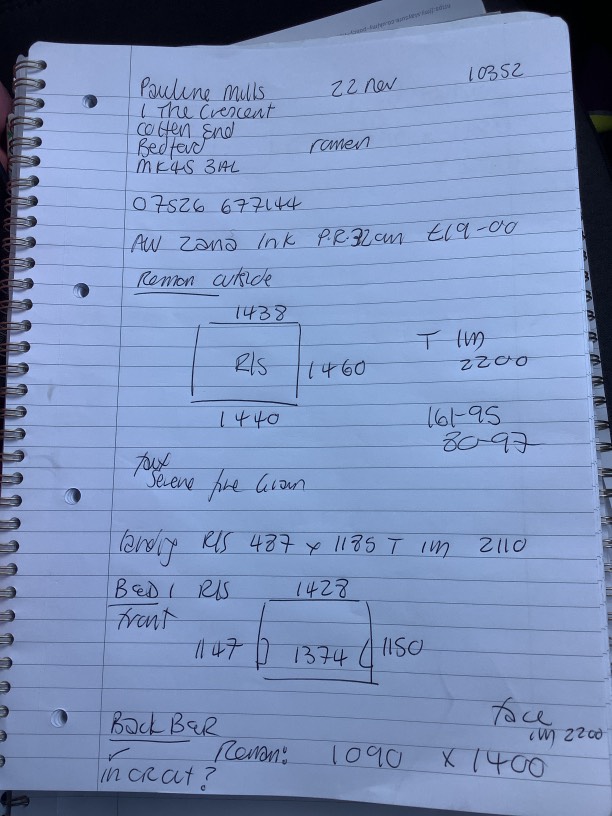 Pauline Mills 22 nov 10352
1 The Crescent
cotten End
Bedford romen
MK45 3AL
07526 677144
AW Zana Ink P.R.32cm £19-00
Roman outside
1438
R/S 1460
1440
T 1m
2200
161-95
80-97
faux
Serene fire Grain
landig R/S 487 x 1185 T 1m 2110
BED 1 R/S 1428
front
1147 1374 1150
Back BER face
1m 2200
Roman: 1090 x 1400
✓
in CRat?